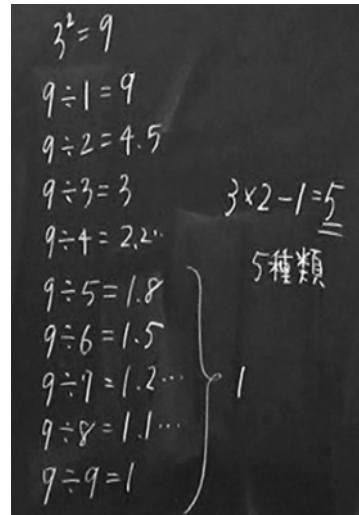 3²=9
9÷1=9
9÷2=4.5
9÷3=3
9÷4=2.2…
9÷5=1.8
9÷6=1.5
9÷7=1.2…
9÷8=1.1…
9÷9=1
1
3×2-1=5
5種類